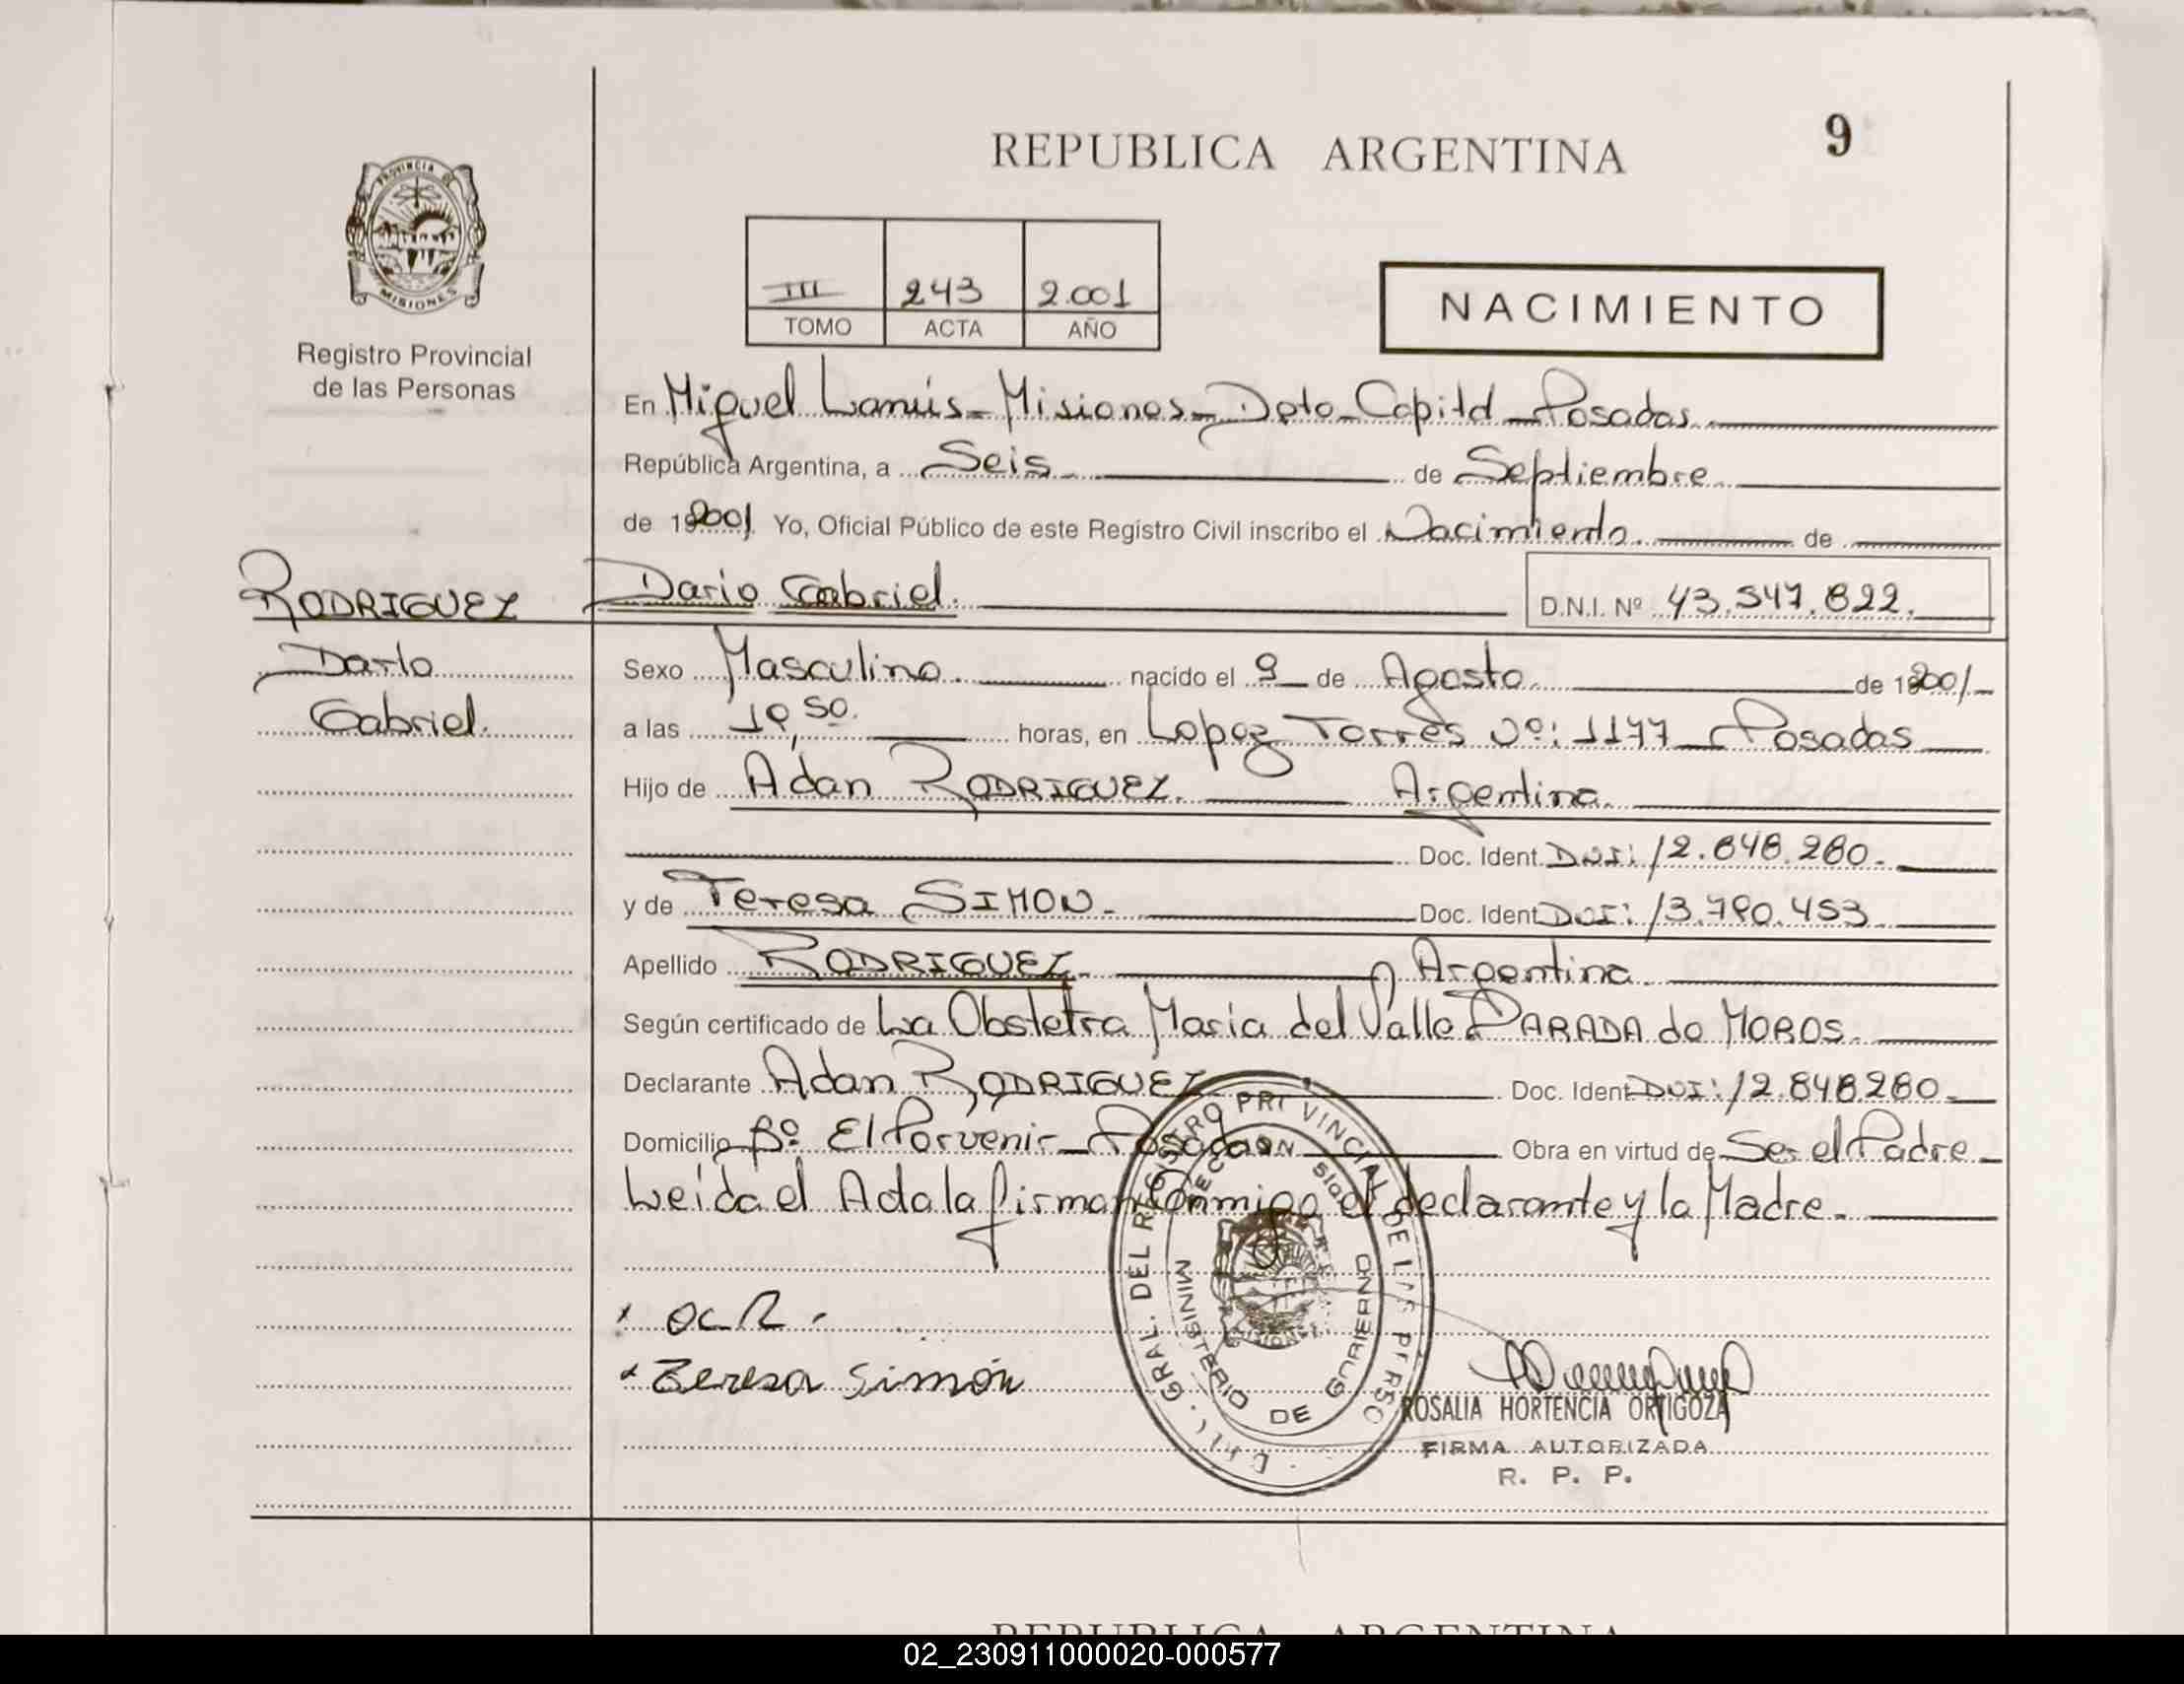 REPUBLICA ARGENTINA
9
PROVINCIA DE
MISIONES
Registro Provincial
de las Personas
III 243 2.001
TOMO ACTA AÑO
NACIMIENTO
En Miguel Lanús - Misiones - Dpto - Capital - Posadas.
República Argentina, a Seis de Septiembre
de 192001 Yo, Oficial Público de este Registro Civil inscribo el Nacimiento. de
RODRIGUEZ Dario Gabriel. D.N.I. Nº 43.547.822.
Dario
Gabriel.
Sexo Masculino. nacido el 9 de Agosto de 192001
a las 10,50. horas, en Lopez Torres Nº: 1177 - Posadas
Hijo de Adan RODRIGUEZ. Argentina.
Doc. Ident. DNI: 12.848.280.-
y de Teresa SIMON.- Doc. Ident. DNI: 13.790.453
Apellido RODRIGUEZ.- Argentina.
Según certificado de La Obstetra Maria del Valle PARADA de MOROS.
Declarante Adan RODRIGUEZ Doc. Ident. DNI: 12.848.280.-
Domicilio Bº El Porvenir - Posadas Obra en virtud de Ser el Padre -
Leída el Acta la firman Conmigo el declarante y la Madre.
Teresa Simón
DEL REGISTRO PROVINCIAL DE LAS PERSO
MINISTERIO DE GOBIERNO
ROSALIA HORTENCIA ORTIGOZA
FIRMA AUTORIZADA
R. P. P.
REPUBLICA ARGENTINA
02_230911000020-000577